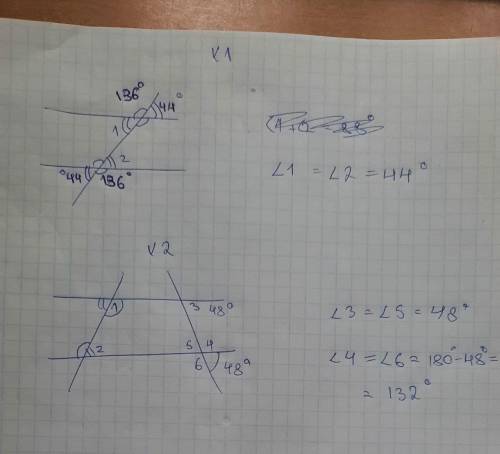 К1
136° 44°
1
2
°44 136°
∠1 = ∠2 = 44°
К2
1 3 48°
2 5 4
6 48°
∠3 = ∠5 = 48°
∠4 = ∠6 = 180° - 48° =
= 132°